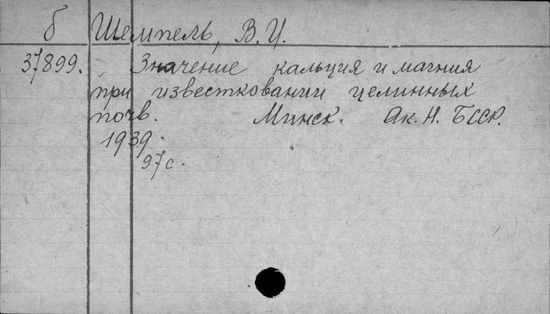 б Шемпель, В.И.
37899. Значение кальция и магния
при известковании целинных
почв. Минск. Ак. Н. БССР.
1939.
97 с.